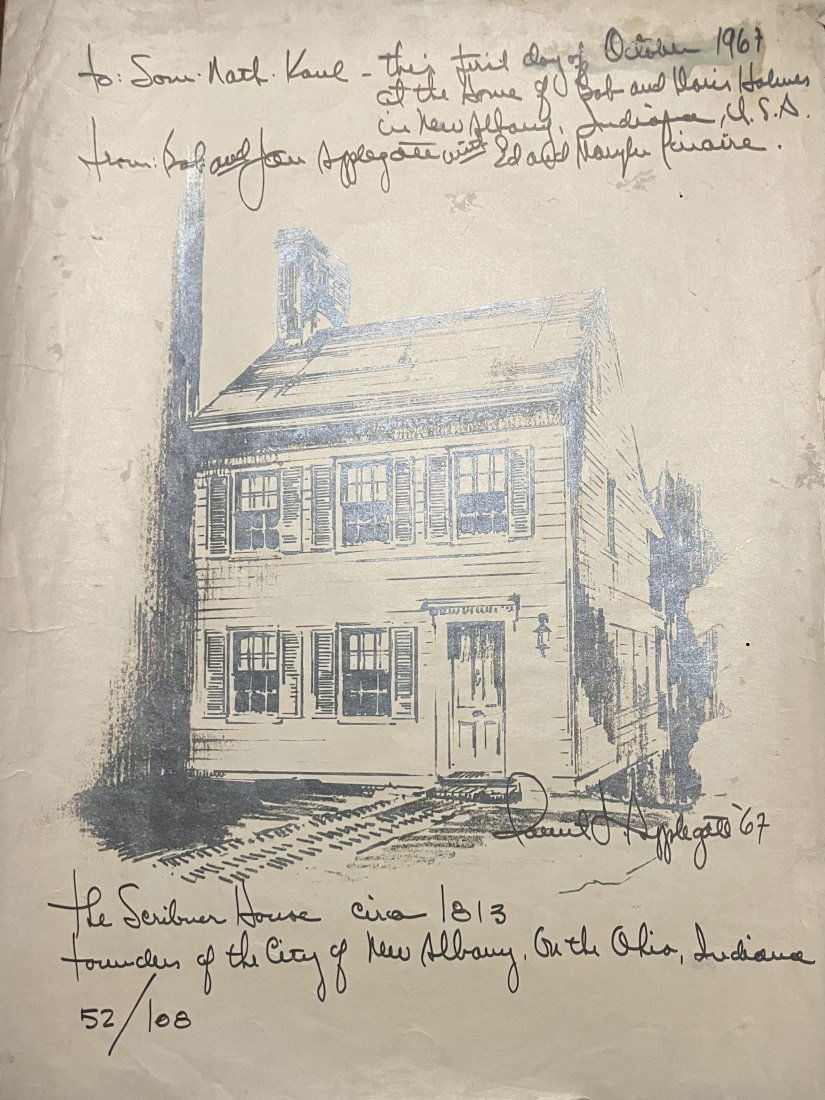 to: Som. Nath. Kaul - this first day of October 1967
at the Home of Bob and Doris Holmes
in New Albany, Indiana, U.S.A.
from: Bob and Jan Applegate with Ed and
J. Applegate '67
The Scribner House circa 1813
Founders of the City of New Albany, On the Ohio, Indiana
52/108